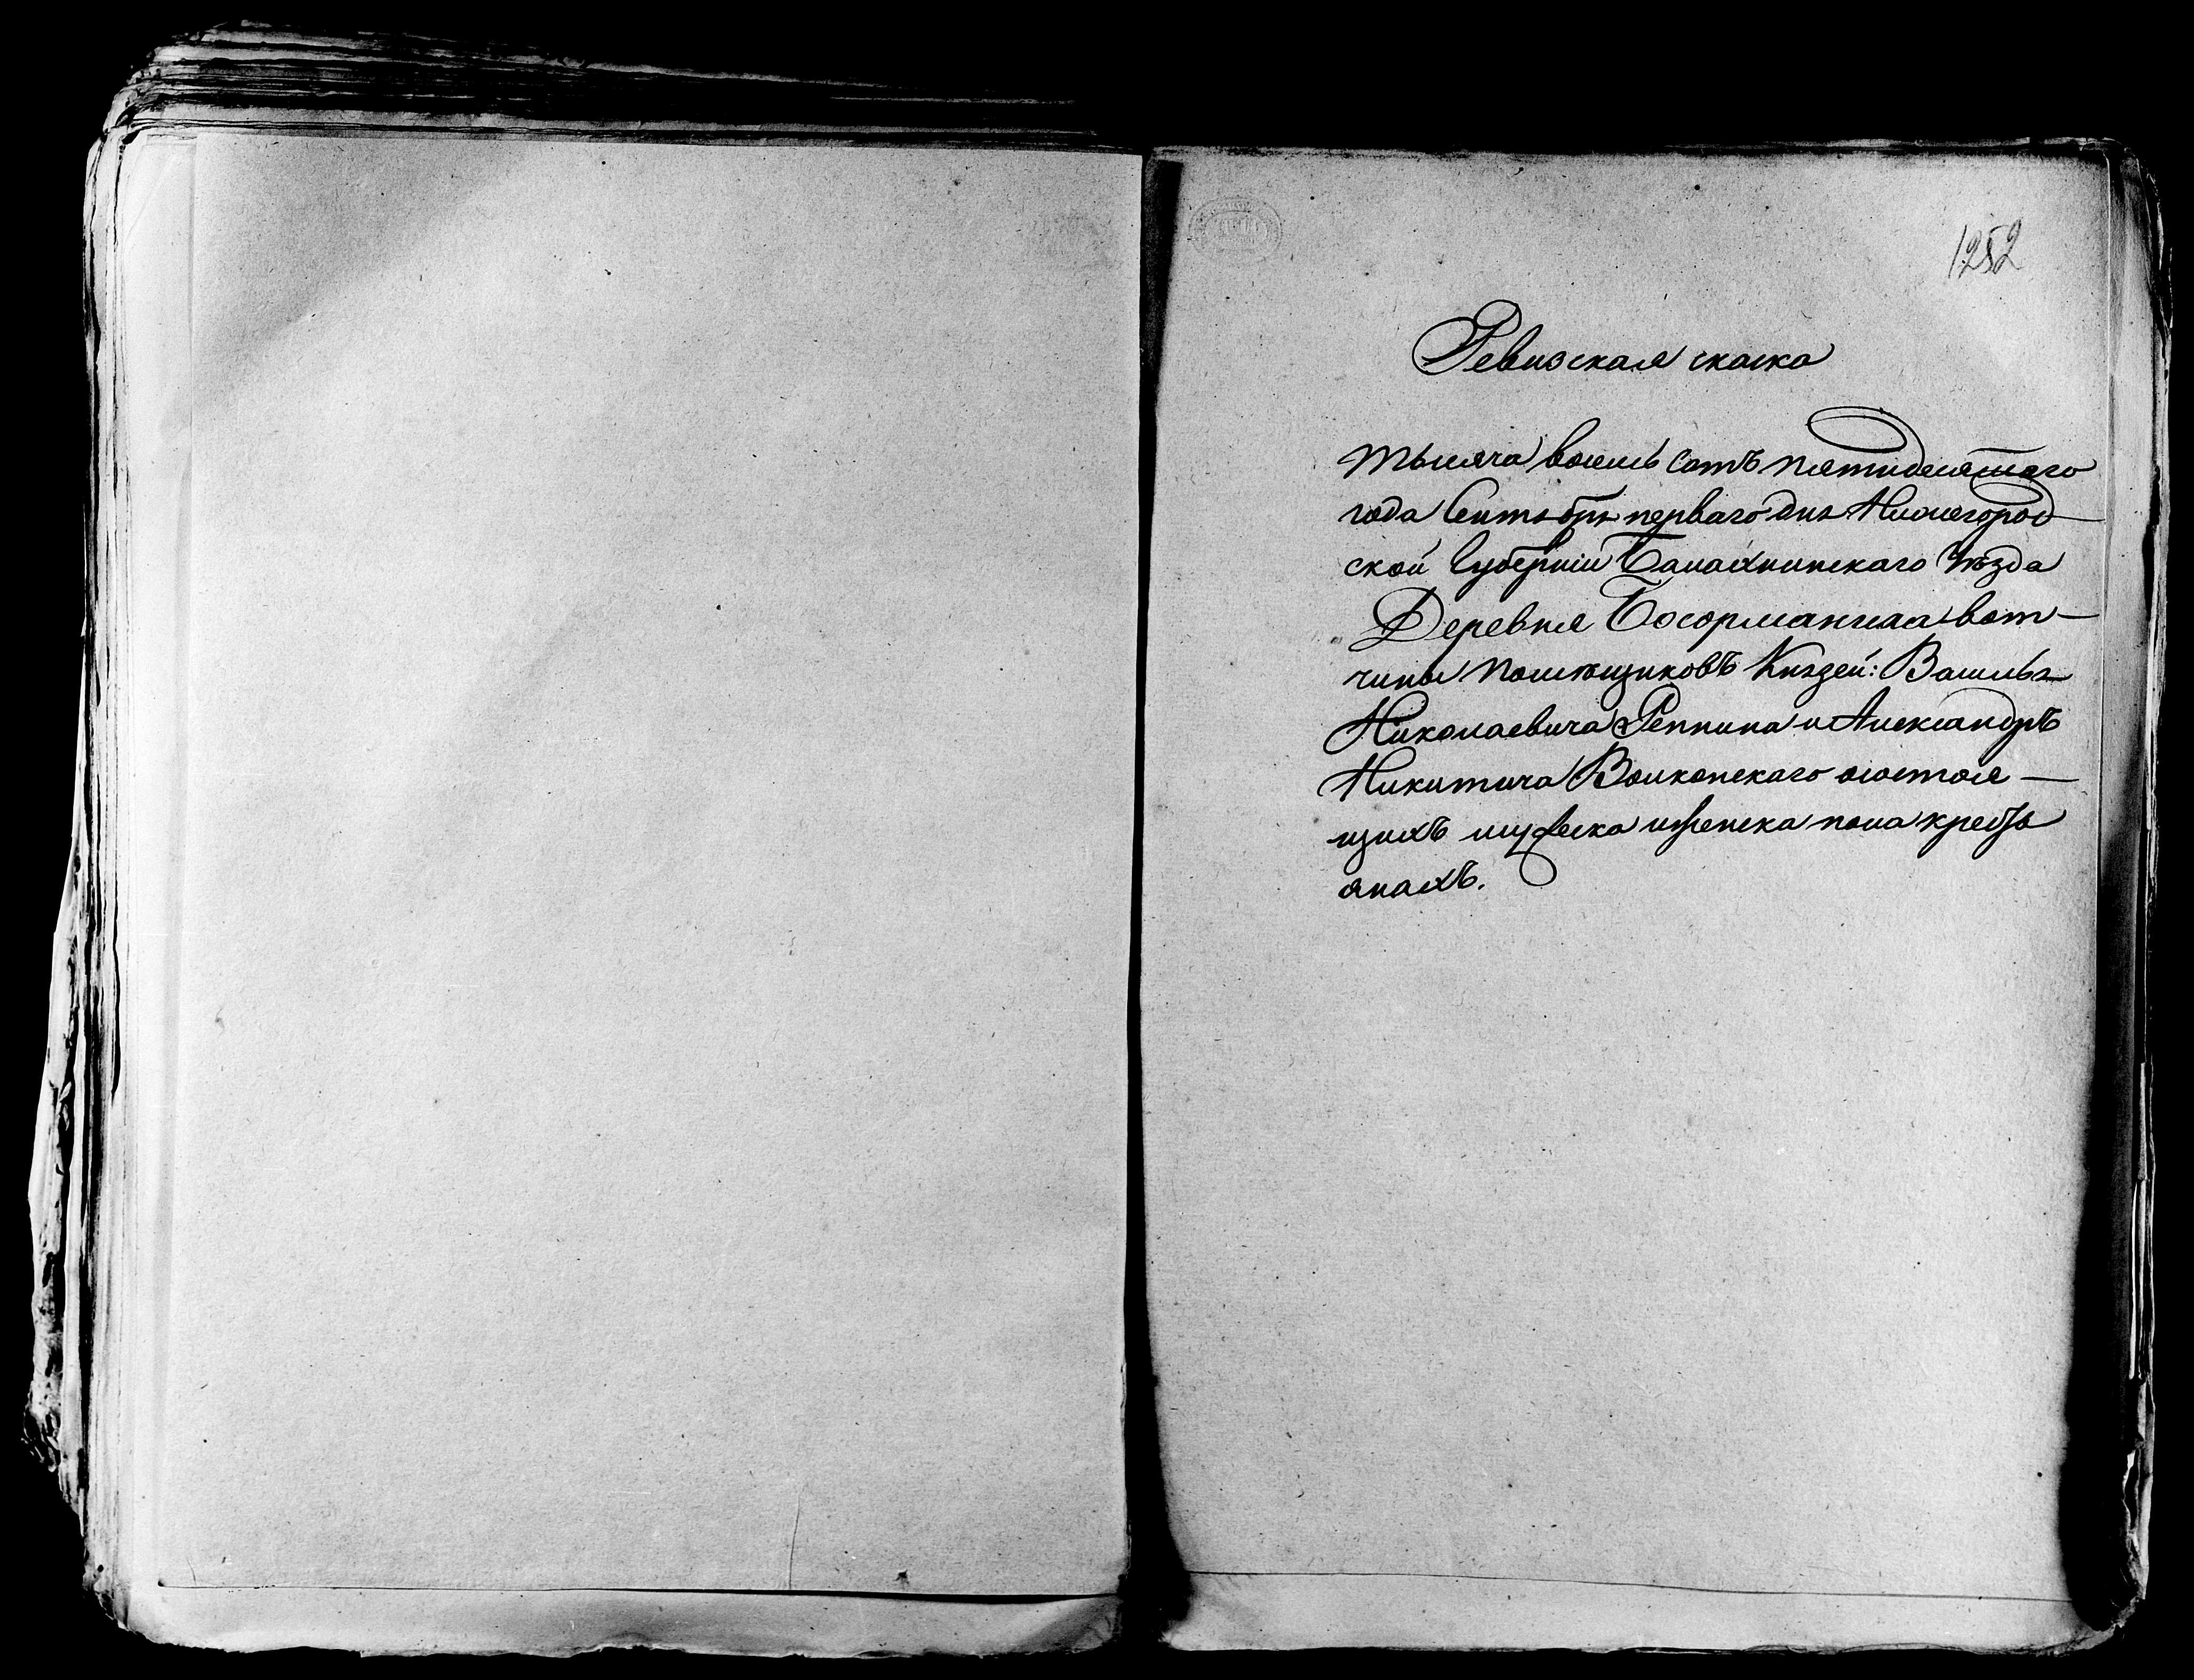 1252
Ревизская скаска
тысяча восемь сотъ пятидесятаго
года Сентября перваго дня Нижегород
ской Губерніи Балахнинскаго Уѣзда
Деревня Босорманиха вот-
чины помѣщиковъ Князей: Василья
Николаевича Репнина и Александръ
Никитича Волконскаго осостоя-
щихъ мужеска иженска пола кресть
янахъ.